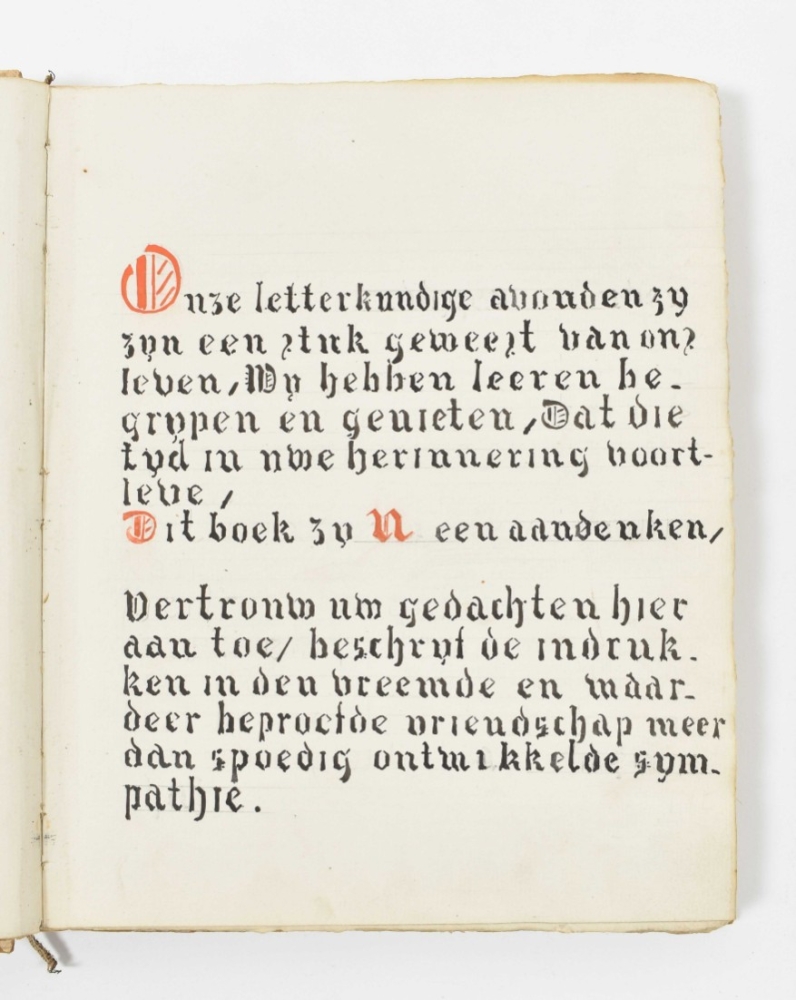 Onze letterkundige avonden zy
zyn een stuk geweest van ons
leven, Wy hebben leeren be-
grypen en genieten, Dat die
tyd in uwe herinnering voort-
leve,
Dit boek zy U een aandenken,
Vertrouw uw gedachten hier
aan toe, beschryf de indruk-
ken in den vreemde en waar-
deer beproefde vriendschap meer
dan spoedig ontwikkelde sym-
pathie.